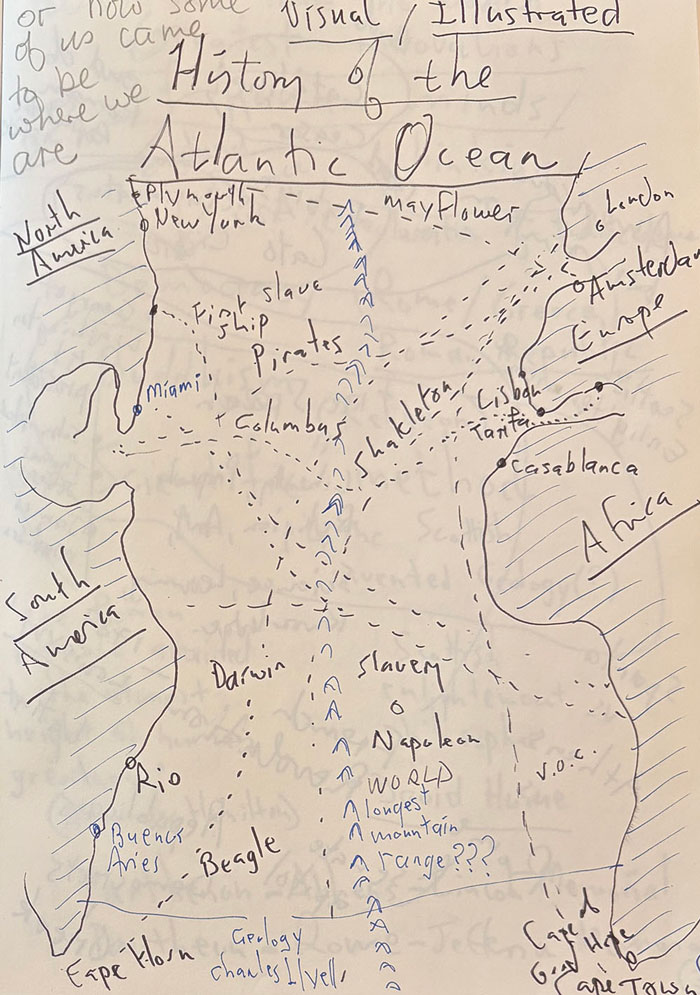 or how some
of us came
to be
where we
are
Visual / Illustrated
History of the
Atlantic Ocean
Plymouth
New York
mayflower
London
North
America
Amsterdam
Europe
First slave
ship
Pirates
Miami
Columbus
Shakleton
Lisbon
Tarifa
Casablanca
Africa
South
America
Darwin
Slavery
Napoleon
V.O.C.
WORLD
longest
mountain
range???
Rio
Buenos
Aries
Beagle
Cape Horn
Geology
Charles
Cape of
Good Hope
Cape Town